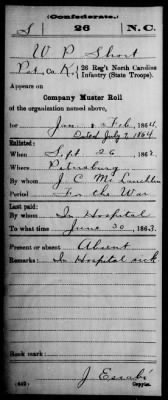 (Confederate.)
S 26 N.C.
W P Short
Pvt, Co. K, 26 Reg't North Carolina
Infantry (State Troops).
Appears on
Company Muster Roll
of the organization named above,
for Jan & Feb, 1864.
Dated July 7, 1864
Enlisted:
When Sept 26, 186
Where Petersburg
By whom J C McLauchlin
Period For the War
Last paid:
By whom In Hospital
To what time June 30, 1863.
Present or absent Absent
Remarks: In Hospital sick
Book mark:
(642) J Escabi
Copyist.